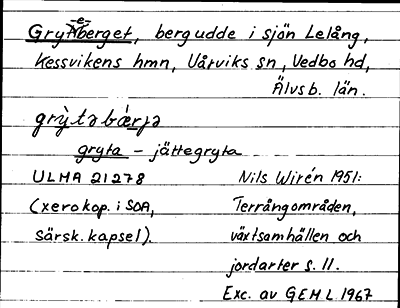 Grytteberget, bergudde i sjön Lelång,
Kessvikens hmn, Vårviks sn, Vedbo hd,
Älvsb. län.
grỳtəbæ̀rjə
gryta – jättegryta
ULMA 21278
(xerokop. i SOA,
särsk. kapsel).
Nils Wirén 1951:
Terrångområden,
växtsamhällen och
jordarter s. 11.
Exc. av GEHL 1967